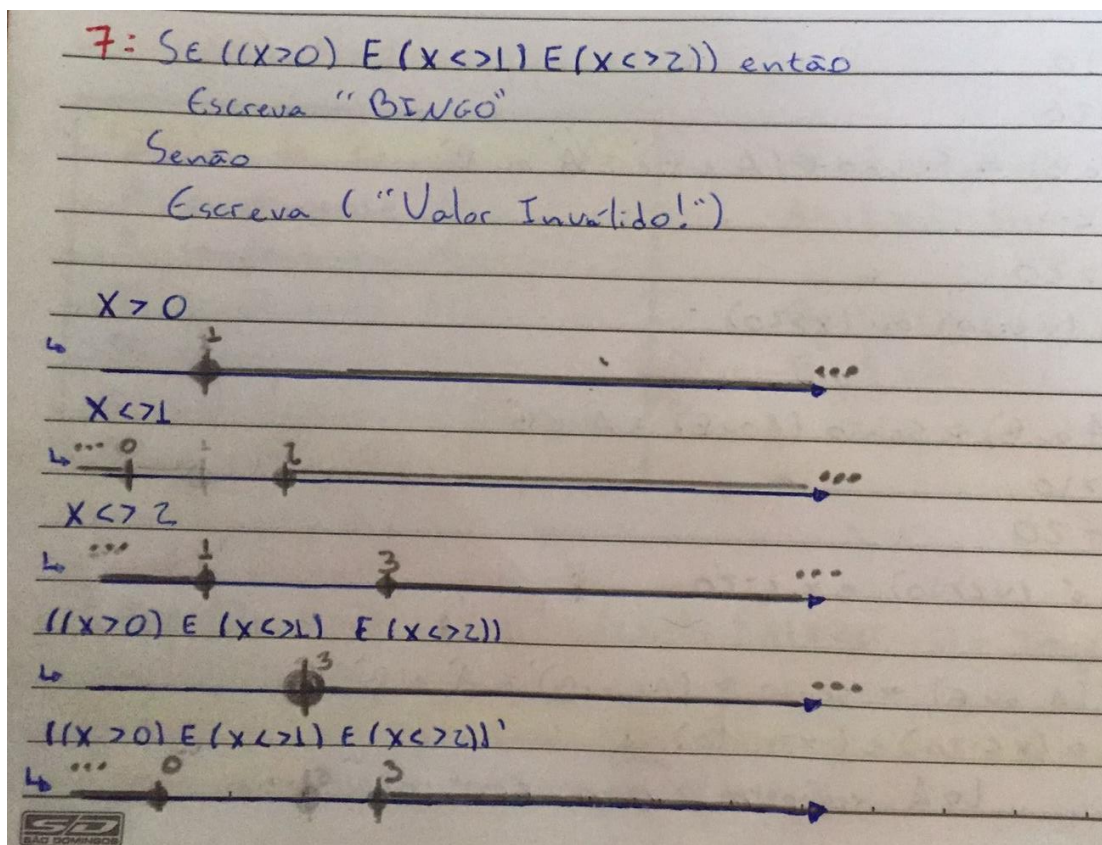 7: SE ((X>0) E (X<>1) E (X<>2)) então
Escreva "BINGO"
Senão
Escreva ("Valor Inválido!")
X > 0
1
...
X <>1
... 0 1 2
...
X <> 2
... 1 3
...
((X>0) E (X<>1) E (X<>2))
3
...
((X>0) E (X<>1) E (X<>2))'
... 0 3
SD
SÃO DOMINGOS